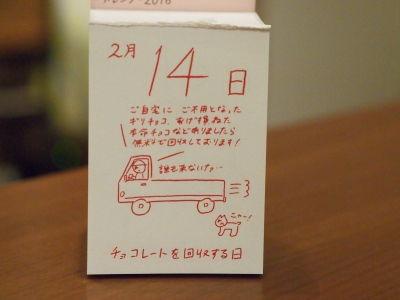 カレンダー2016
2月
14日
ご自宅に ご不用となった
ギリチョコ、あげ損ねた
本命チョコなどありましたら
無料で回収しております!
誰も来ないなァ…
にゃー!
チョコレートを回収する日